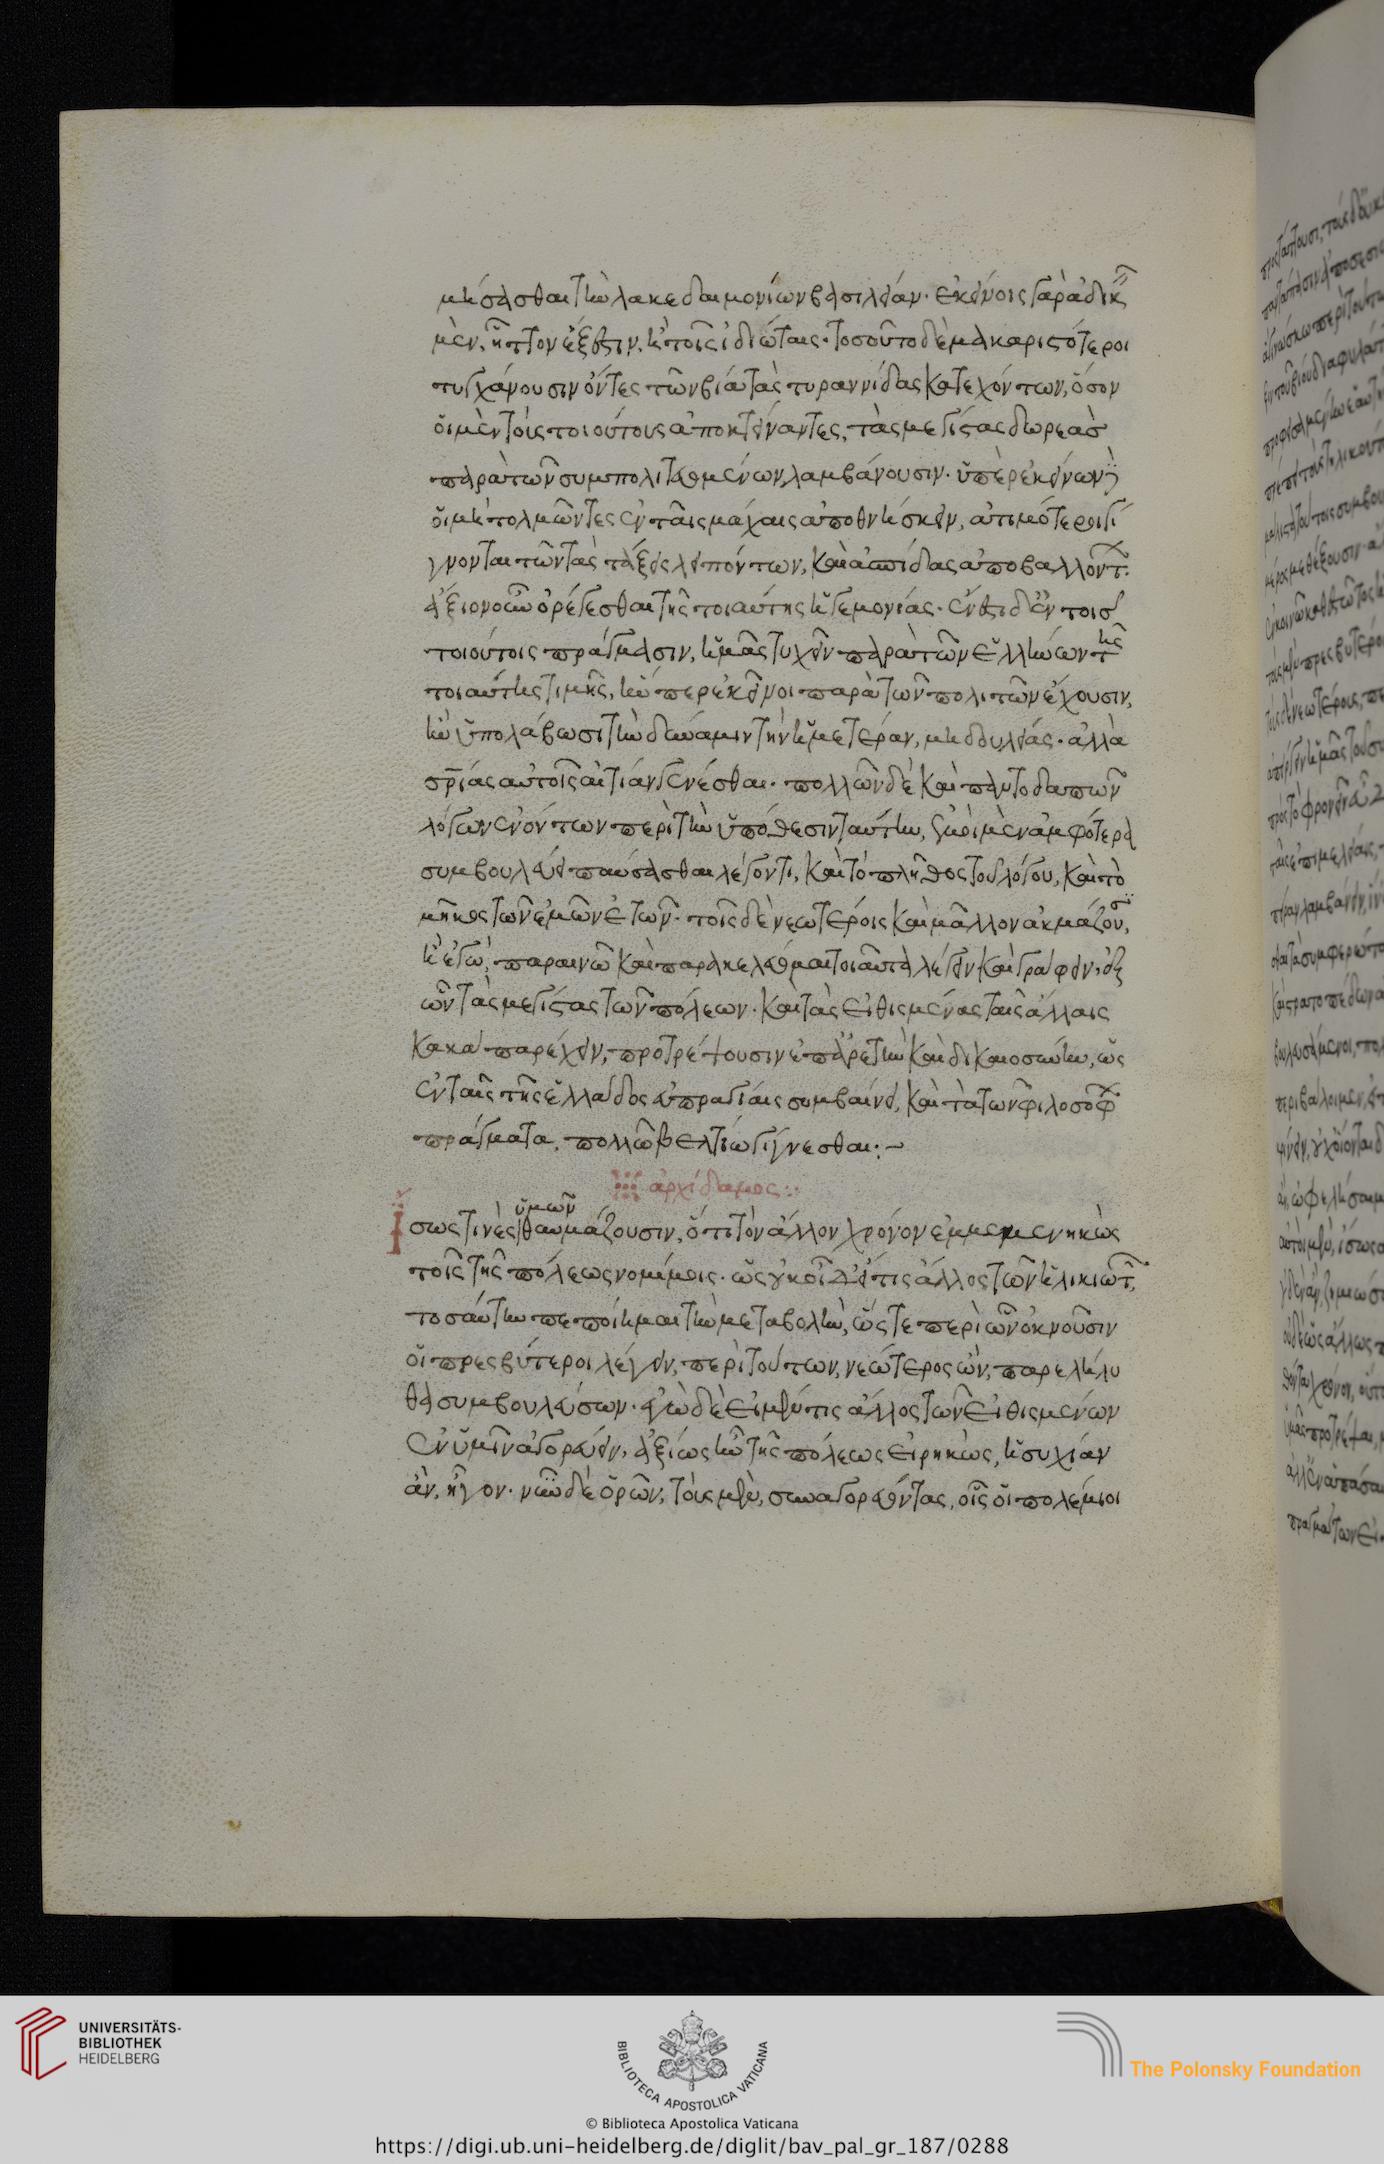 μήσασθαι τὴν λακεδαιμονίων βασιλείαν· ἐκείνοις γὰρ ἀδικεῖν
μὲν, ἧττον ἔξεστιν, ἢ τοῖς ἰδιώταις· τοσοῦτο δὲ μακαριστότεροι
τυγχάνουσιν ὄντες τῶν βίᾳ τὰς τυραννίδας κατεχόντων, ὅσον
οἱ μὲν τοὺς τοιούτους ἀποκτείναντες, τὰς μεγίστας δωρεὰς
παρὰ τῶν συμπολιτευομένων λαμβάνουσιν· ὑπὲρ ἐκείνων δ'
οἱ μὴ τολμῶντες ἐν ταῖς μάχαις ἀποθνήσκειν, ἀτιμότεροι γί
γνονται τῶν τὰς τάξεις λειπόντων, καὶ ἀσπίδας ἀποβαλλόντων·
ἄξιον οὖν ὀρέγεσθαι τῆς τοιαύτης ἡγεμονίας· ἔνεστι δ' ἐν τοῖς
τοιούτοις πράγμασιν, ἡμᾶς τυχεῖν παρὰ τῶν ἑλλήνων τῆς
τοιαύτης τιμῆς, ἥνπερ ἐκεῖνοι παρὰ τῶν πολιτῶν ἔχουσιν,
ἢν ὑπολάβωσι τὴν δύναμιν τὴν ἡμετέραν, μὴ δουλείας· ἀλλὰ
σρίας αὐτοῖς αἰτίαν γενέσθαι· πολλῶν δὲ καὶ παντοδαπῶν
λόγων ἐνόντων περὶ τὴν ὑπόθεσιν ταύτην, ἐμοὶ μὲν ἀμφότερα
συμβουλεύει παύσασθαι λέγοντι, καὶ τὸ πλῆθος τοῦ λόγου, καὶ τὸ
μῆκος τῶν ἐμῶν ἐτῶν· τοῖς δὲ νεωτέροις καὶ μᾶλλον ἀκμάζουσιν,
ἢ ἐγώ, παραινῶ καὶ παρακελεύομαι τοιαῦτα λέγειν καὶ γράφειν, ἐξ
ὧν τὰς μεγίστας τῶν πόλεων· καὶ τὰς εἰθισμένας ταῖς ἄλλαις
κακὰ παρέχειν, προτρέψουσιν ἐπ' ἀρετὴν καὶ δικαιοσύνην, ὡς
ἐν ταῖς τῆς ἑλλάδος εὐπραγίαις συμβαίνει, καὶ τὰ τῶν φιλοσόφων
πράγματα, πολλῶ βελτίω γίγνεσθαι:~
ἀρχίδαμος:
Ἴσως τινὲς ὑμῶν θαυμάζουσιν, ὅτι τὸν ἄλλον χρόνον ἐμμεμενηκὼς
τοῖς τῆς πόλεως νομίμοις· ὡς οὐκ οἶδ' εἴ τις ἄλλος τῶν ἡλικιωτῶν,
τοσαύτην πεποίημαι τὴν μεταβολὴν, ὥστε περὶ ὧν ὀκνοῦσιν
οἱ πρεσβύτεροι λέγειν, περὶ τούτων, νεώτερος ὢν, παρελήλυ
θα συμβουλεύσων· ἐγὼ δὲ εἰ μέν τις ἄλλος τῶν εἰθισμένων
ἐν ὑμῖν ἀγορεύειν, ἀξίως ἦν τῆς πόλεως εἰρηκὼς, ἡσυχίαν
ἂν, ἦγον· νῦν δὲ ὁρῶν, τοὺς μὲν, συναγορεύοντας, οἷς οἱ πολέμιοι
UNIVERSITÄTS-
BIBLIOTHEK
HEIDELBERG
BIBLIOTECA APOSTOLICA VATICANA
The Polonsky Foundation
© Biblioteca Apostolica Vaticana
https://digi.ub.uni-heidelberg.de/diglit/bav_pal_gr_187/0288